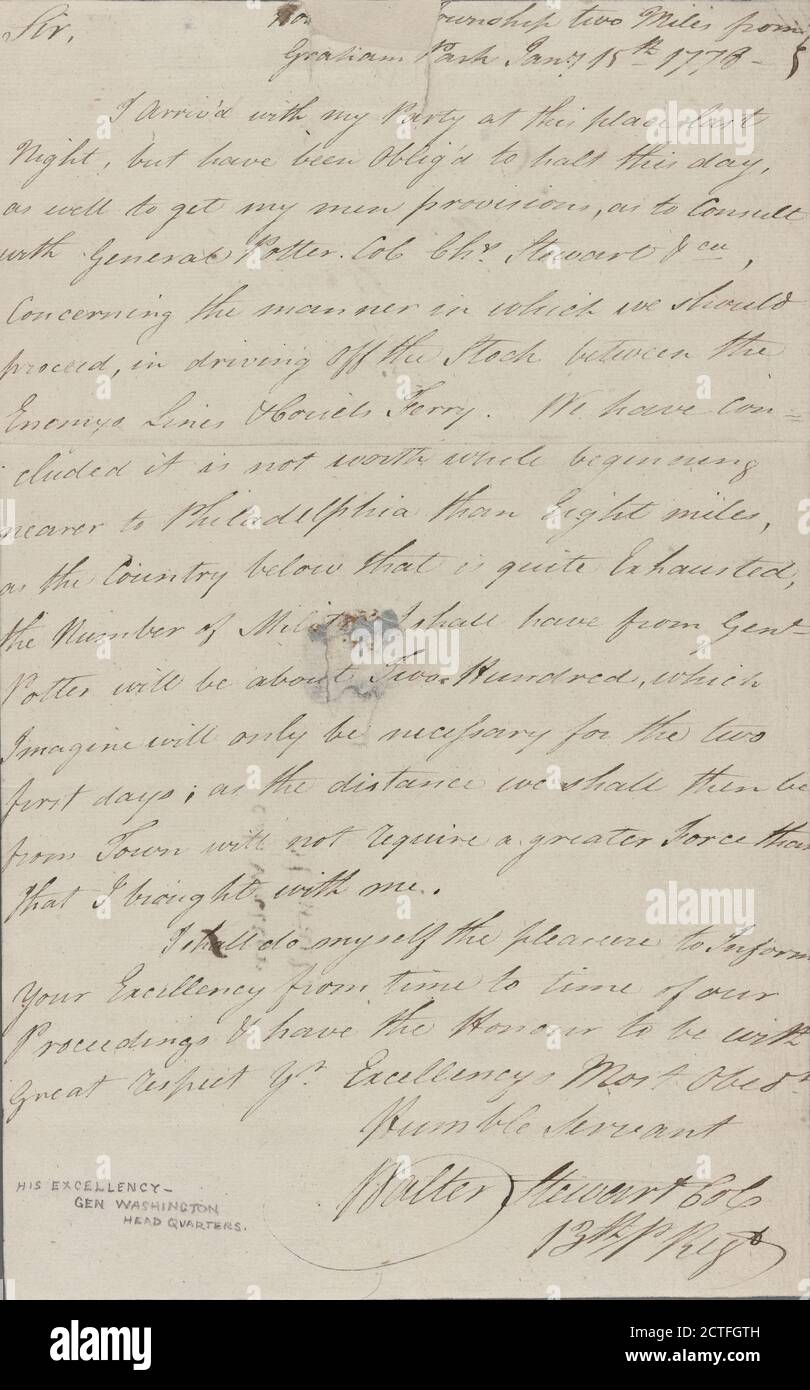 Sir,
ownship two Miles from
Graham Park Jany 15th 1778 -
I Arriv'd with my Party at this place last
Night, but have been Oblig'd to halt this day,
as well to get my men provisions, as to Consult
with General Potter. Col Chs. Stewart &ca,
Concerning the manner in which we should
proceed, in driving off the Stock between the
Enemys Lines & Coriels Ferry. We have Con=
cluded it is not worth while beginning
nearer to Philadelphia than Eight miles,
as the Country below that is quite Exhausted,
the Number of Militia I shall have from Genl
Potter will be about Two Hundred, which
Imagine will only be necessary for the two
first days; as the distance we shall then be
from Town will not require a greater Force than
that I brought with me.
I shall do myself the pleasure to Inform
Your Excellency from time to time of our
Proceedings & have the Honour to be with
Great respect Yr. Excellencys Most Obedt
Humble Servant
Walter Stewart Col
13th P Regt
HIS EXCELLENCY-
GEN WASHINGTON
HEAD QUARTERS.
alamy
alamy
Image ID: 2CTFGTH
www.alamy.com